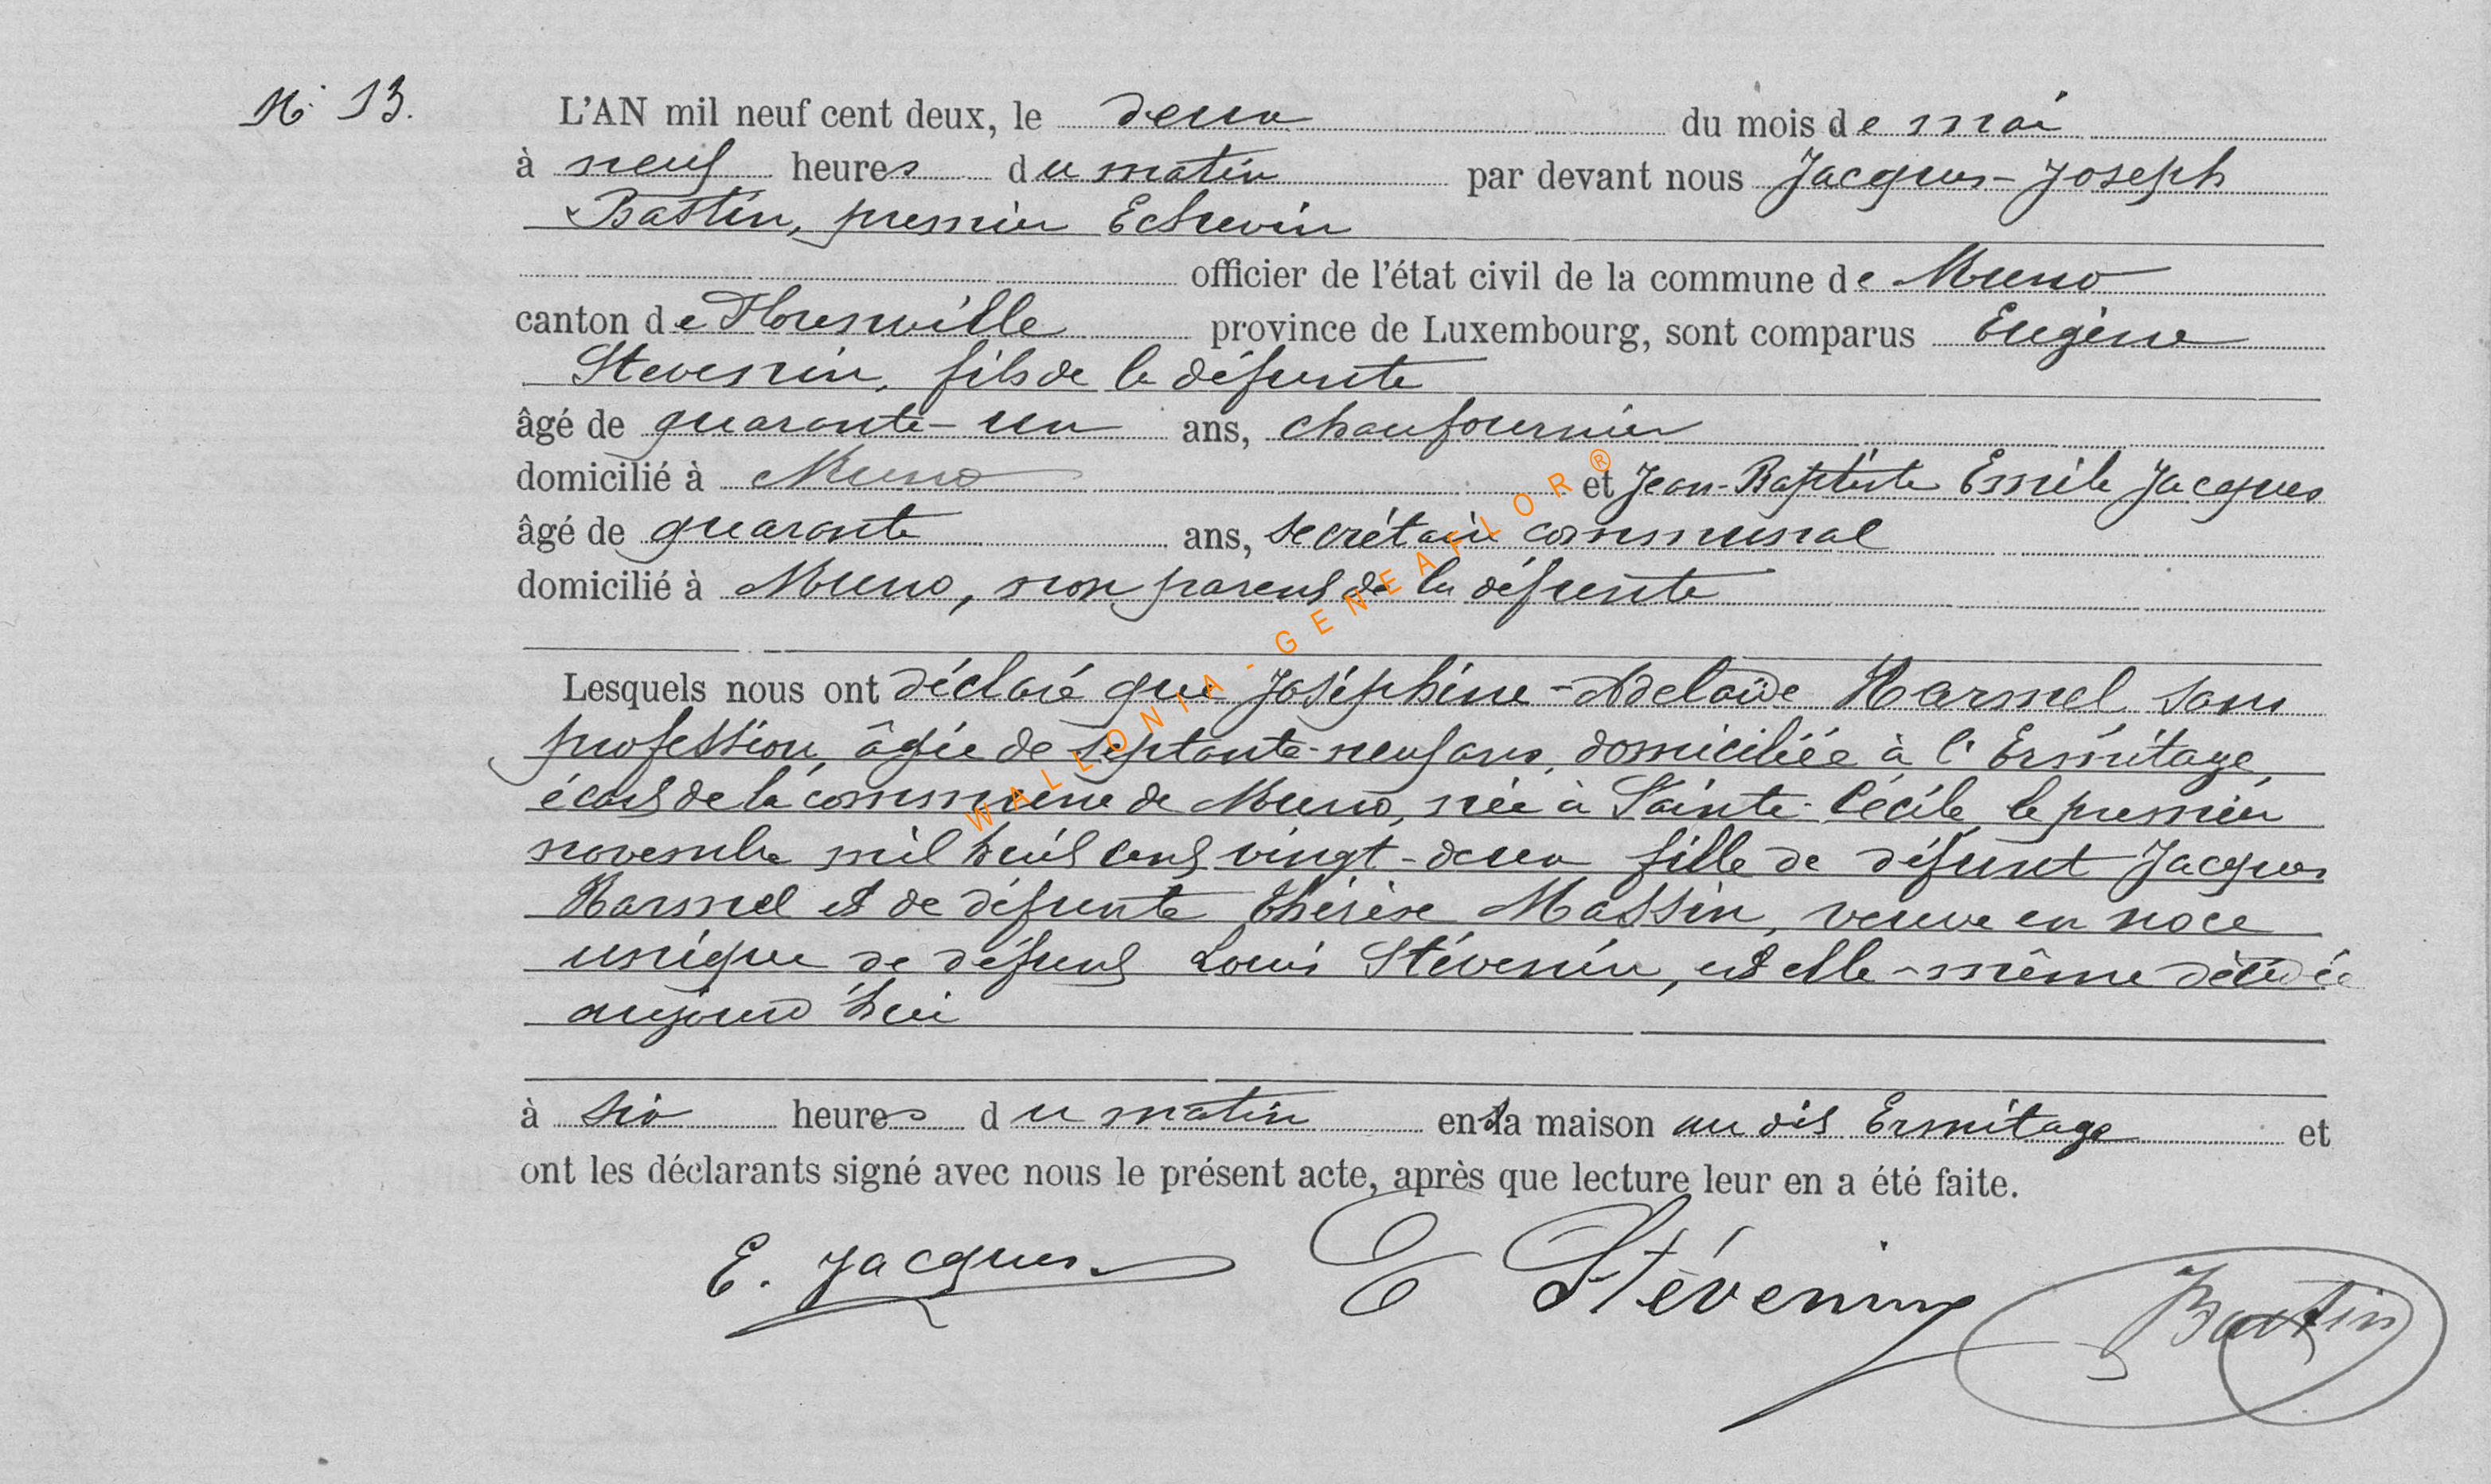 N° 13.
L'AN mil neuf cent deux, le deux du mois de mai
à neuf heures du matin par devant nous Jacques-Joseph
Bastin, premier Echevin
officier de l'état civil de la commune de Muno
canton de Florenville province de Luxembourg, sont comparus Eugène
Stevenin, fils de la défunte
âgé de quarante-un ans, chaufournier
domicilié à Muno et Jean-Baptiste Emile Jacques
âgé de quarante ans, secrétaire communal
domicilié à Muno, non parent de la défunte
Lesquels nous ont déclaré que Joséphine-Adelaïde Harmel sans
profession, âgée de septante-neuf ans, domiciliée à l'Ermitage,
écart de la commune de Muno, née à Sainte-Cécile le premier
novembre mil huit cent vingt-deux fille de défunt Jacques
Harmel et de défunte Thérèse Massin, veuve en noce
unique de défunt Louis Stévenin, est elle-même décédée
aujourd'hui
à six heures du matin en sa maison au dit Ermitage et
ont les déclarants signé avec nous le présent acte, après que lecture leur en a été faite.
E. Jacques
E Stévenin
Bastin
WALLONIA-GENEAFLOR®